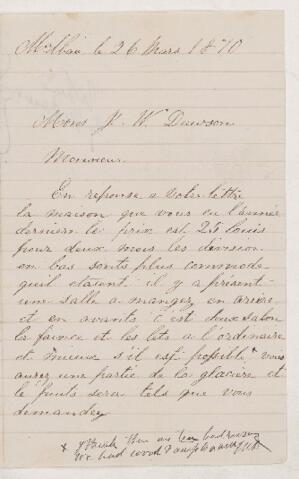 Mlbaie le 26 Mars 1870
Mons J. W. Dawson
Monsieur
En reponse a votre lettre
la maison que vous eu l'année
derniere le prix est 25 louis
pour deux mois les division
en bas sonts plus commode
quil etaient il y a présent
une salle a manger en ariere
et en avants c'est deux salon
la faience et les lits a l'ordinaire
et mieux s'il est possible * vous
aurez une partie de la glacière et
le fruits sera tels que vous
demandez
* I think then
We had wood